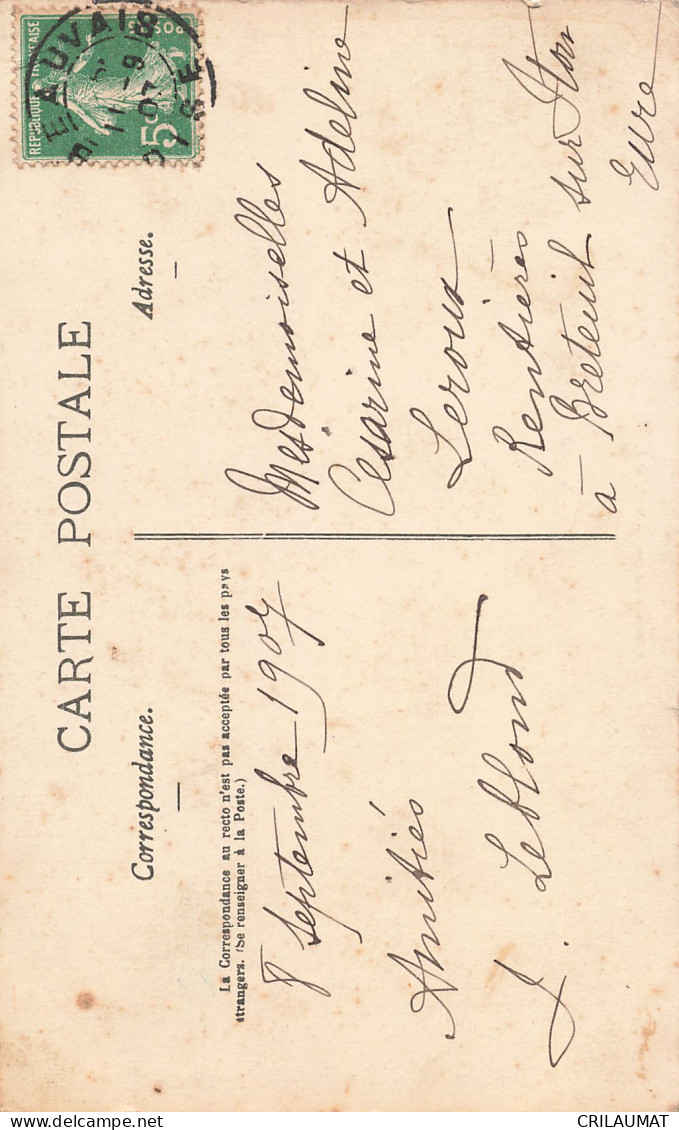 CARTE POSTALE
Correspondance.
La Correspondance au recto n'est pas acceptée par tous les pays
étrangers. (Se renseigner à la Poste.)
8 Septembre 1907
Amitiés
J. Leblond
Adresse.
Mesdemoiselles
Cesarine et Adeline
Leroux
Rentières
à Breteuil sur Iton
Eure
REPUBLIQUE FRANÇAISE
POSTES
5c
BEAUVAIS
11 - 9
07
OISE
CRILAUMAT